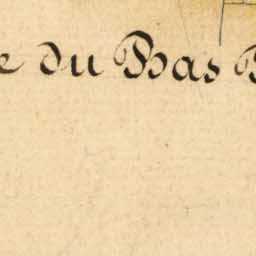 e du Bas B